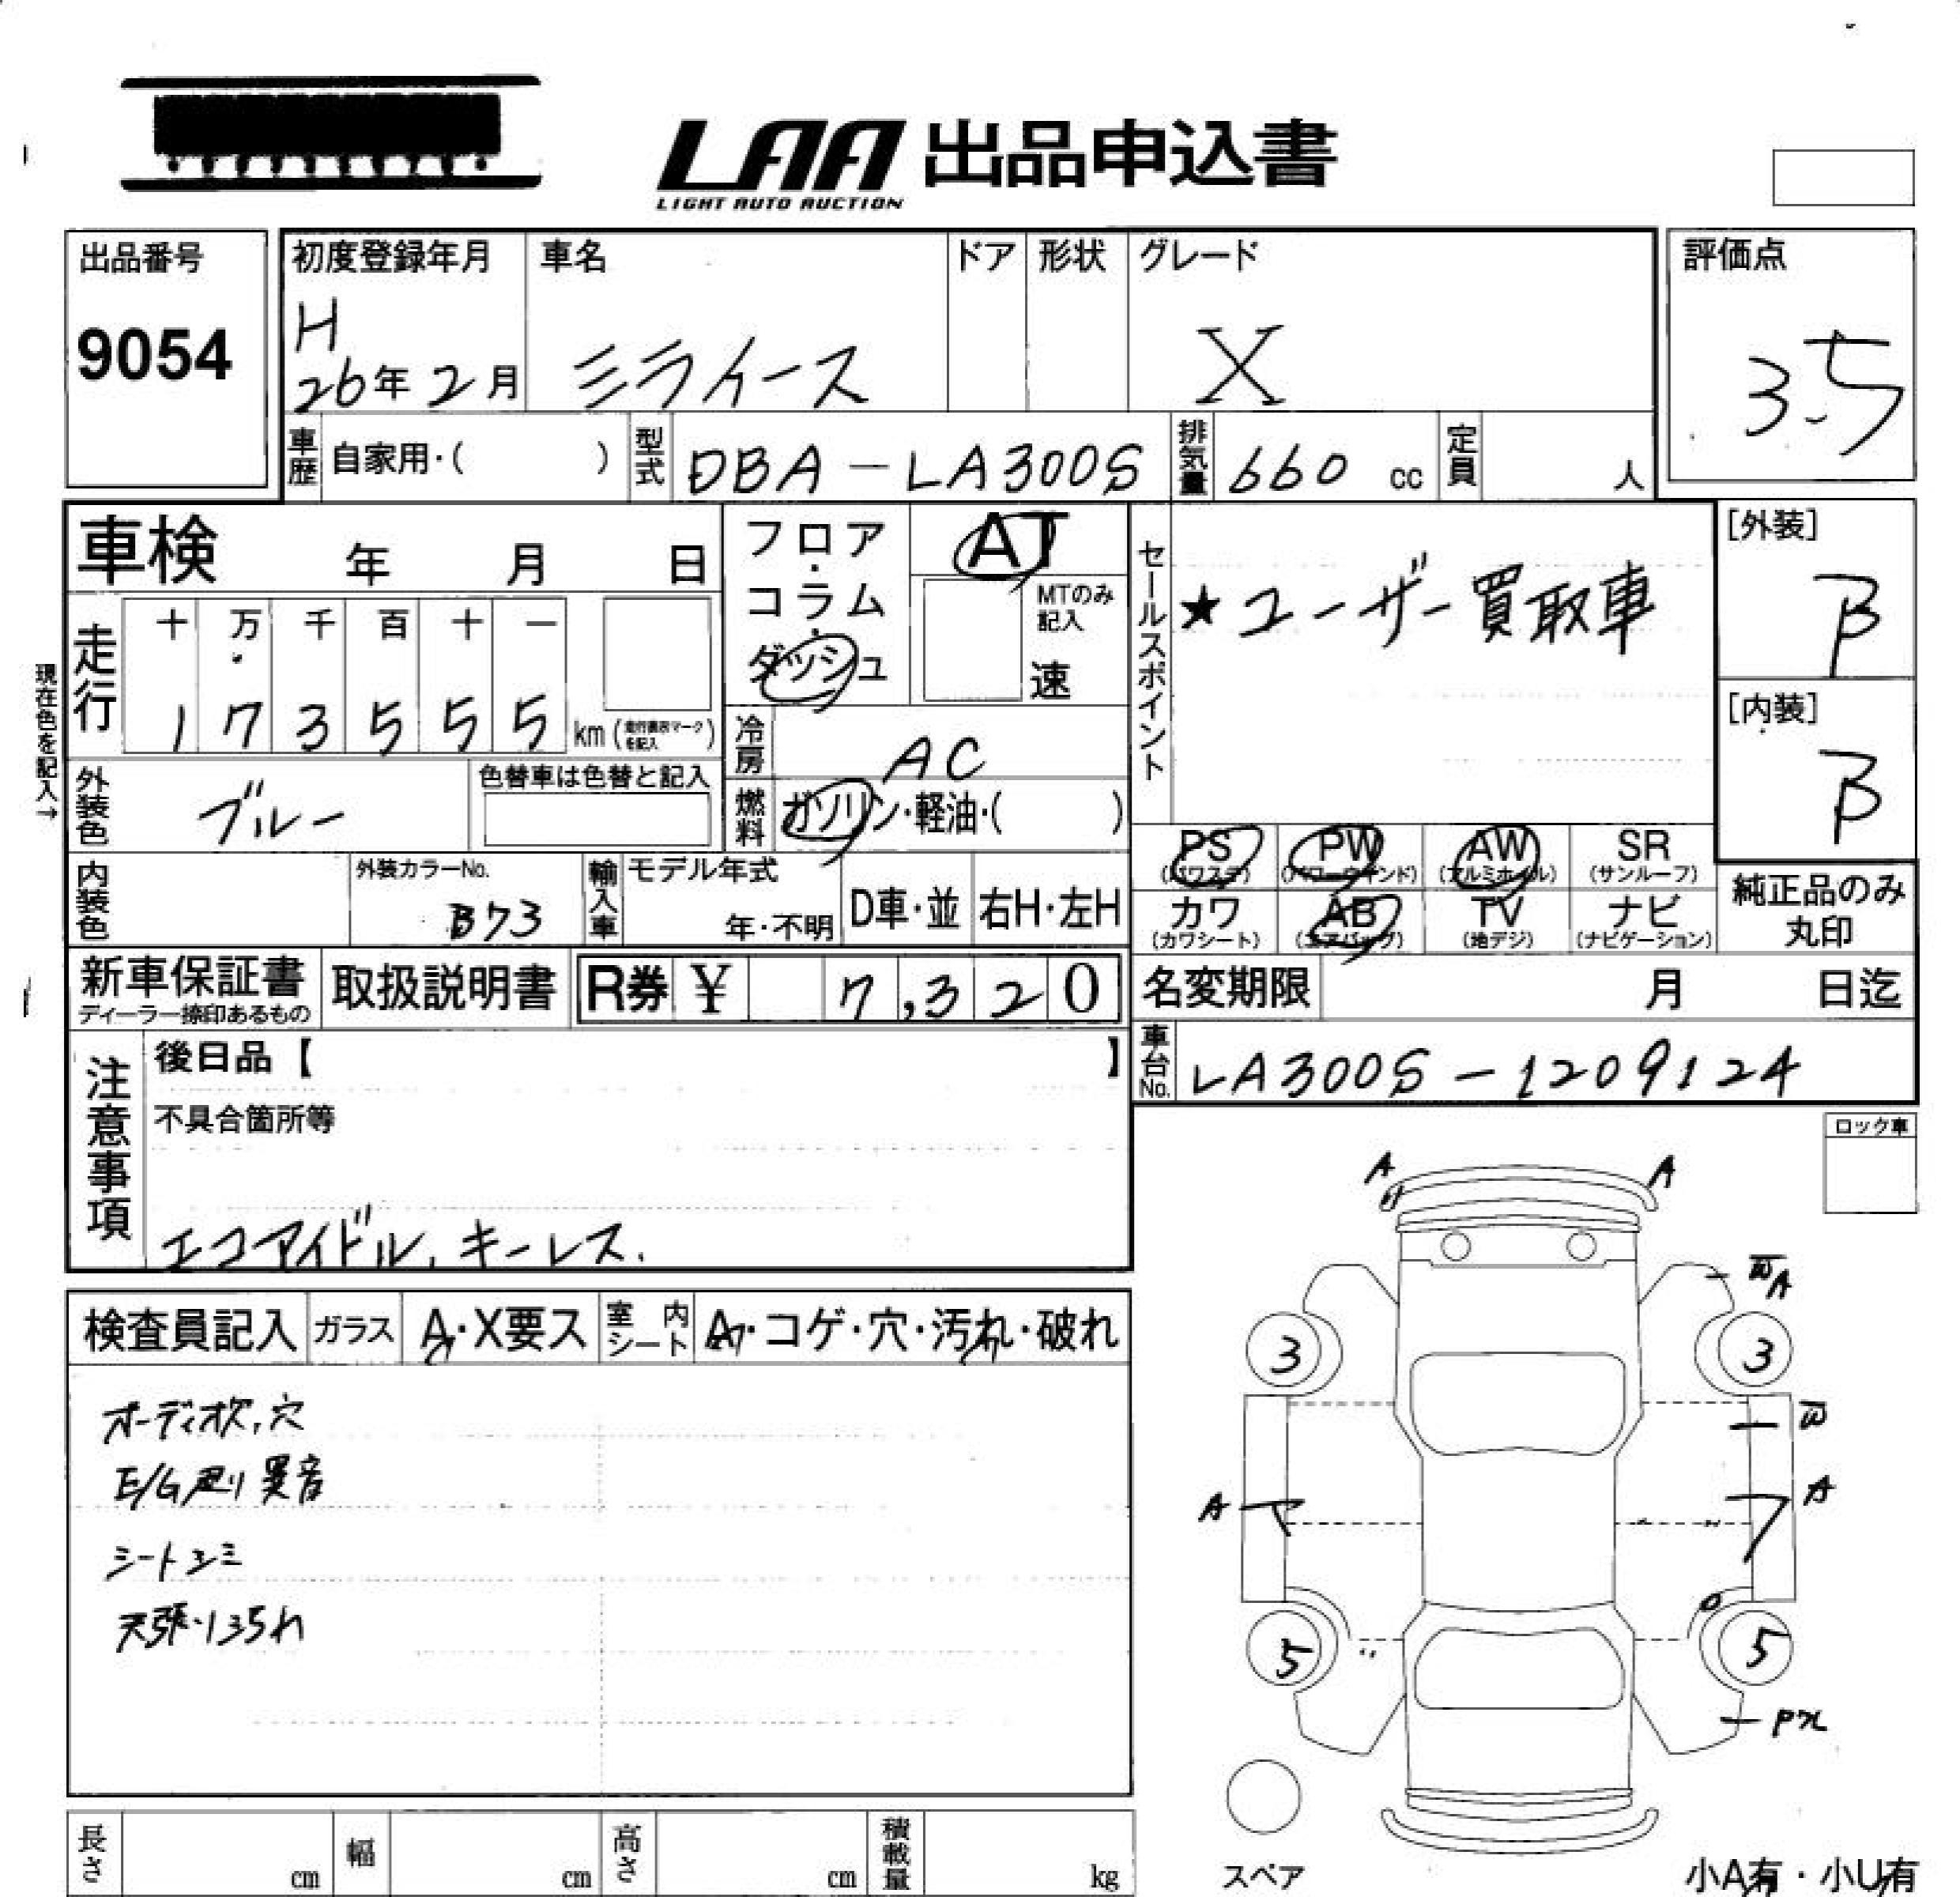 LAA 出品申込書
LIGHT AUTO AUCTION
出品番号
9054
初度登録年月
H
26年 2月
車名
ミライース
ドア
形状
グレード
X
評価点
3.5
車歴
自家用・( )
型式
DBA-LA300S
排気量
660 cc
定員
人
車検 年 月 日
走行
十 万 千 百 十 一
1 7 3 5 5 5
km
現在色を記入→
フロア・コラム・ダッシュ
AT
MTのみ記入
速
冷房
AC
燃料
ガソリン・軽油・( )
セールスポイント
★ユーザー買取車
[外装]
B
[内装]
B
外装色
ブルー
色替車は色替と記入
内装色
外装カラーNo.
B73
輸入車
モデル年式
年・不明
D車・並
右H・左H
PS
(パワステ)
PW
(パワーウインド)
AW
(アルミホイル)
SR
(サンルーフ)
カワ
(カワシート)
AB
(エアバッグ)
TV
(地デジ)
ナビ
(ナビゲーション)
純正品のみ
丸印
新車保証書
ディーラー捺印あるもの
取扱説明書
R券 ¥ 7,320
名変期限 月 日迄
車台No.
LA300S-1209124
注意事項
後日品【 】
不具合箇所等
エコアイドル, キーレス.
ロック車
検査員記入
ガラス
A・X要ス
室内シート
A・コゲ・穴・汚れ・破れ
オーディオ欠,穴
E/G廻り異音
シートシミ
天張り汚れ
A
A
W A
3
3
W
A
A
5
5
スペア
小A有・小U有
長さ cm
幅 cm
高さ cm
積載量 kg